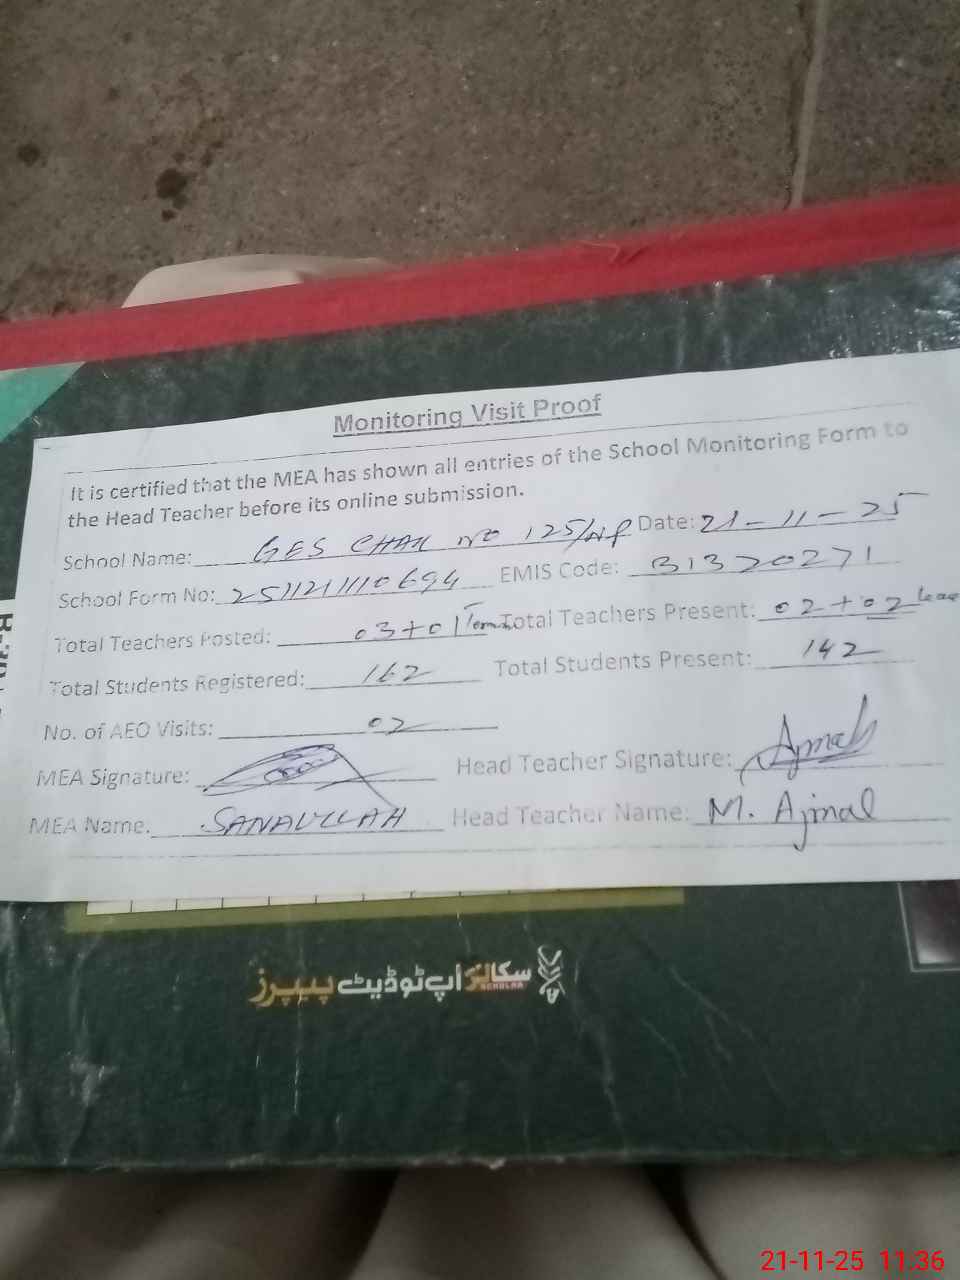 Monitoring Visit Proof
It is certified that the MEA has shown all entries of the School Monitoring Form to
the Head Teacher before its online submission.
School Name: GES CHAK NO 125/NP Date: 21-11-25
School Form No: 251121110694 EMIS Code: 31320271
Total Teachers Posted: 03+01 Total Teachers Present: 02+02 leave
Total Students Registered: 162 Total Students Present: 142
No. of AEO Visits: 02
MEA Signature: Head Teacher Signature: Ajmal
MEA Name. SANAULLAH Head Teacher Name: M. Ajmal
سکالر اپ ٹو ڈیٹ پیپرز
SCHOLAR
21-11-25 11:36